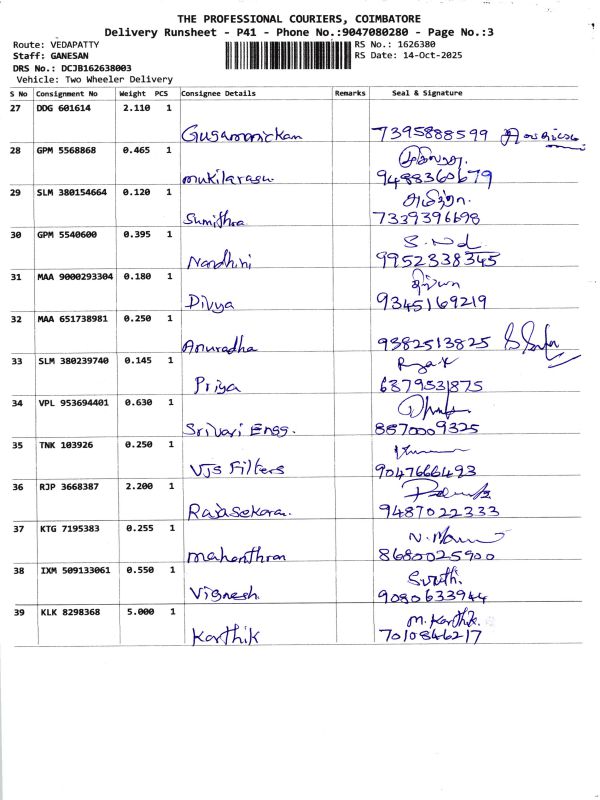 THE PROFESSIONAL COURIERS, COIMBATORE
Delivery Runsheet - P41 - Phone No.:9047080280 - Page No.:3
Route: VEDAPATTY
RS No.: 1626380
Staff: GANESAN
RS Date: 14-Oct-2025
DRS No.: DCJB162638003
Vehicle: Two Wheeler Delivery
S No Consignment No Weight PCS Consignee Details Remarks Seal & Signature
27 DDG 601614 2.110 1
7395888599
28 GPM 5568868 0.465 1
mukilarasu 9488360679
29 SLM 380154664 0.120 1
Sumithra 7339396698
30 GPM 5540600 0.395 1
Nandhini 9952338345
31 MAA 9000293304 0.180 1
Divya 9345169219
32 MAA 651738981 0.250 1
Anuradha 9382513825
33 SLM 380239740 0.145 1
Priya 6379531875
34 VPL 953694401 0.630 1
Srivari Engg. 8870009325
35 TNK 103926 0.250 1
VJS Filters 9047666493
36 RJP 3668387 2.200 1
Rajasekaran. 9487022333
37 KTG 7195383 0.255 1
mahenthran 8680025900
38 IXM 509133061 0.550 1
Vignesh. 9080633944
39 KLK 8298368 5.000 1
M. Karthik.
Karthik 7010846217